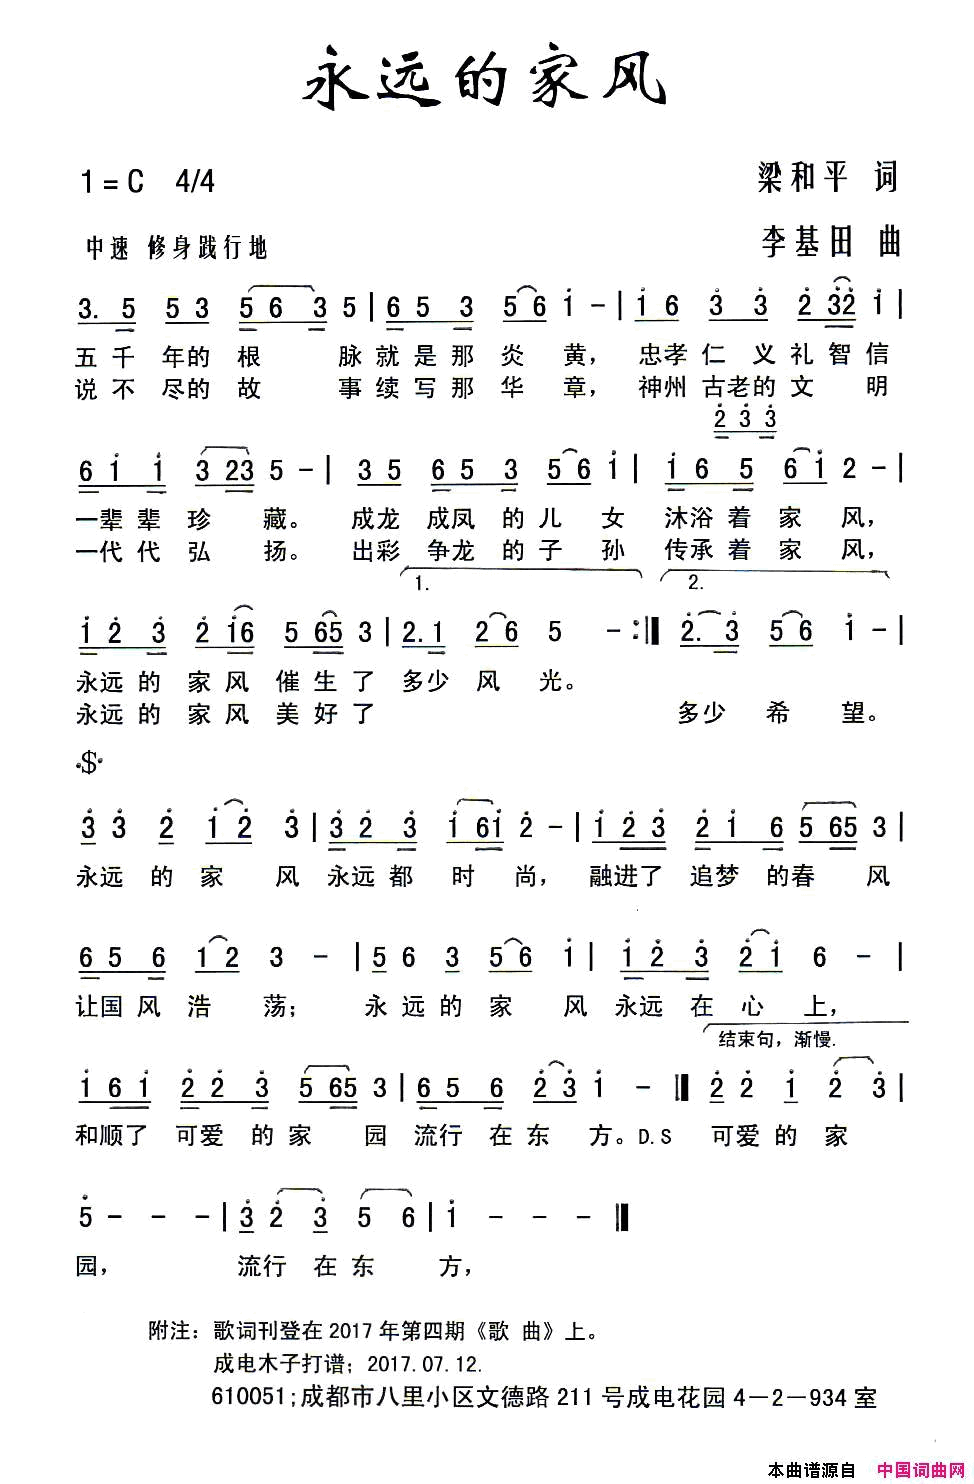 永远的家风
1=C 4/4
梁和平 词
中速 修身践行地
李基田 曲
3. 5 5 3 5 6 3 5 | 6 5 3 5 6 i - | i 6 3 3 2 3 2 i |
五千年的根 脉就是那炎 黄， 忠孝仁义礼智信
说不尽的故 事续写那华 章， 神州古老的文 明
2 3 3
6 i i 3 2 3 5 - | 3 5 6 5 3 5 6 i | i 6 5 6 i 2 - |
一辈辈珍 藏。 成龙成凤的儿 女 沐浴着家 风，
一代代弘 扬。 出彩争龙的子 孙 传承着家 风，
1. 2.
i 2 3 2 i 6 5 6 5 3 | 2. 1 2 6 5 - :‖ 2. 3 5 6 i - |
永远的家风催生了多少风 光。
永远的家风美好了 多少希 望。
·$·
3 3 2 i 2 3 | 3 2 3 i 6 i 2 - | i 2 3 2 i 6 5 6 5 3 |
永远的家 风永远都时 尚， 融进了追梦的春 风
6 5 6 1 2 3 - | 5 6 3 5 6 i | i 2 3 2 i 6 - |
让国风浩 荡； 永远的家 风永远在心 上，
结束句，渐慢.
i 6 i 2 2 3 5 6 5 3 | 6 5 6 2 3 i - ‖ 2 2 i 2 3 |
和顺了可爱的家 园流行在东 方。D.S 可爱的家
5 - - - | 3 2 3 5 6 | i - - - ‖
园， 流行在东 方，
附注：歌词刊登在2017年第四期《歌 曲》上。
成电木子打谱；2017.07.12.
610051;成都市八里小区文德路211号成电花园4－2－934室
本曲谱源自 中国词曲网